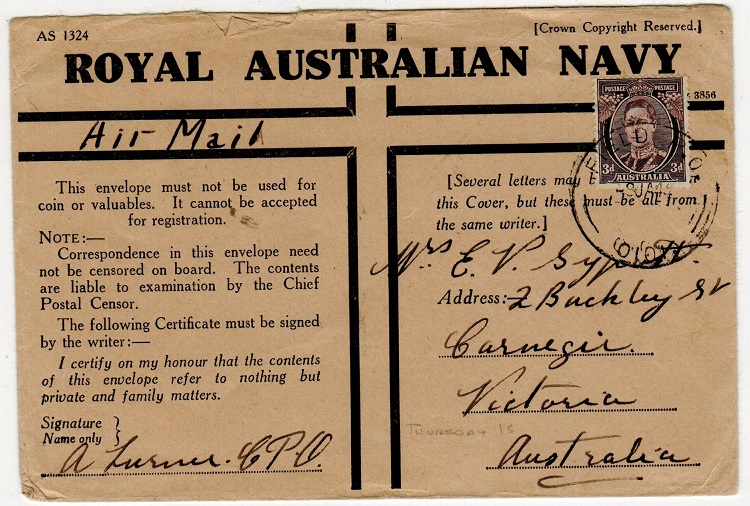 AS 1324
[Crown Copyright Reserved.]
ROYAL AUSTRALIAN NAVY
3856
Air Mail
POSTAGE POSTAGE
3d AUSTRALIA 3d
This envelope must not be used for
coin or valuables. It cannot be accepted
for registration.
NOTE:—
Correspondence in this envelope need
not be censored on board. The contents
are liable to examination by the Chief
Postal Censor.
The following Certificate must be signed
by the writer:—
I certify on my honour that the contents
of this envelope refer to nothing but
private and family matters.
Signature
Name only
A Turner. C.P.O.
[Several letters may
this Cover, but these must be all from
the same writer.]
Mrs E. V.
Address: 2 Buckley St
Carnegie.
Victoria
Australia
THURSDAY IS